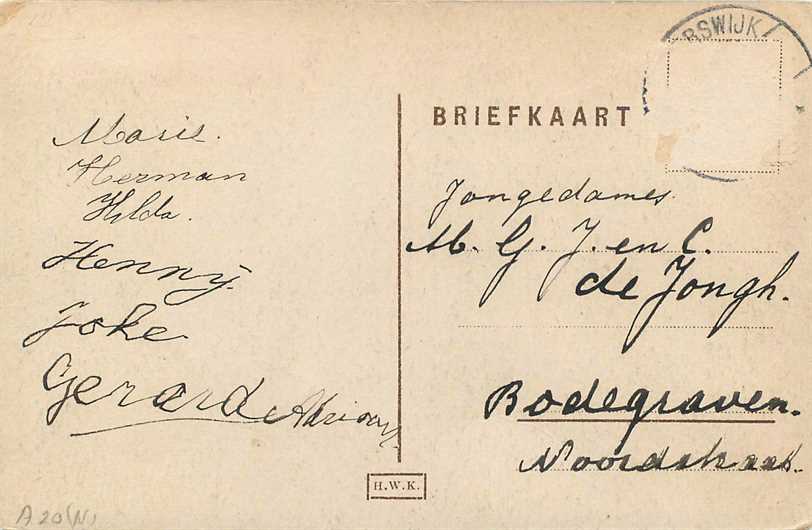 Marie.
Herman
Hilda.
Henny.
Joke
Gerard Adriaan
BRIEFKAART
RSWIJK
Jongedames
M. G. J. en C.
de Jongh.
Bodegraven.
Noordstraat.
H.W.K.
A 20 (N)